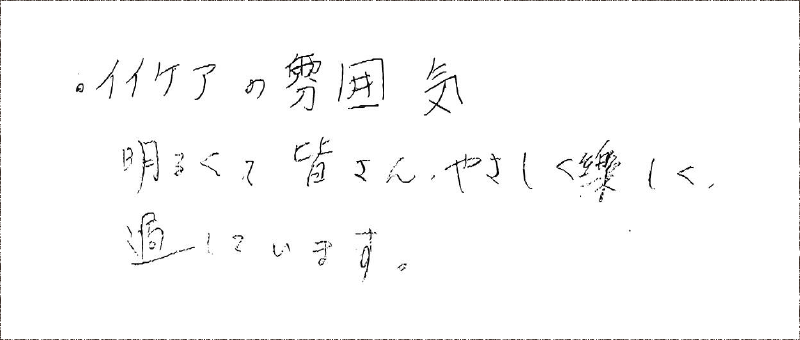 ・イイケアの雰囲気
明るくて皆さん、やさしく楽しく、
過しています。